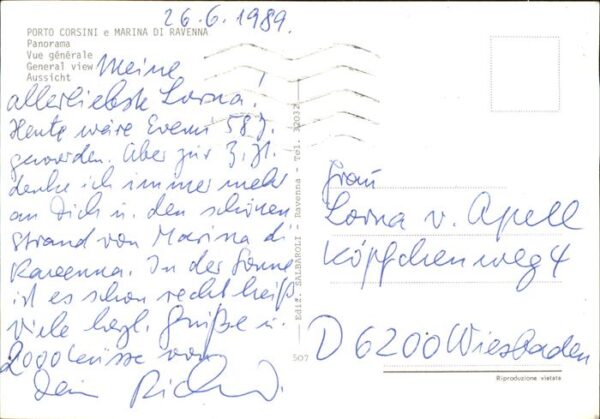 26.6.1989.
PORTO CORSINI e MARINA DI RAVENNA
Panorama
Vue générale
General view
Aussicht
Meine
allerliebste Lorna!
Heute wäre 58 J.
geworden. Aber zur Z. ist
denke ich immer mehr
an Dich u. den schönen
Strand von Marina di
Ravenna. In der Sonne
ist es schon recht heiß
viele hzgl. Grüße u.
2000 Küsse von
Dein Richard.
Ediz. SALBAROLI - Ravenna - Tel. 32032
507
Frau
Lorna v. Apell
Köpfchenweg 4
D 6200 Wiesbaden
Riproduzione vietata